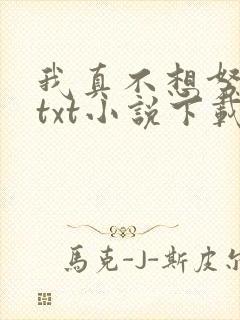 我真不想努
txt小說下載
馬克-J-斯皮尔